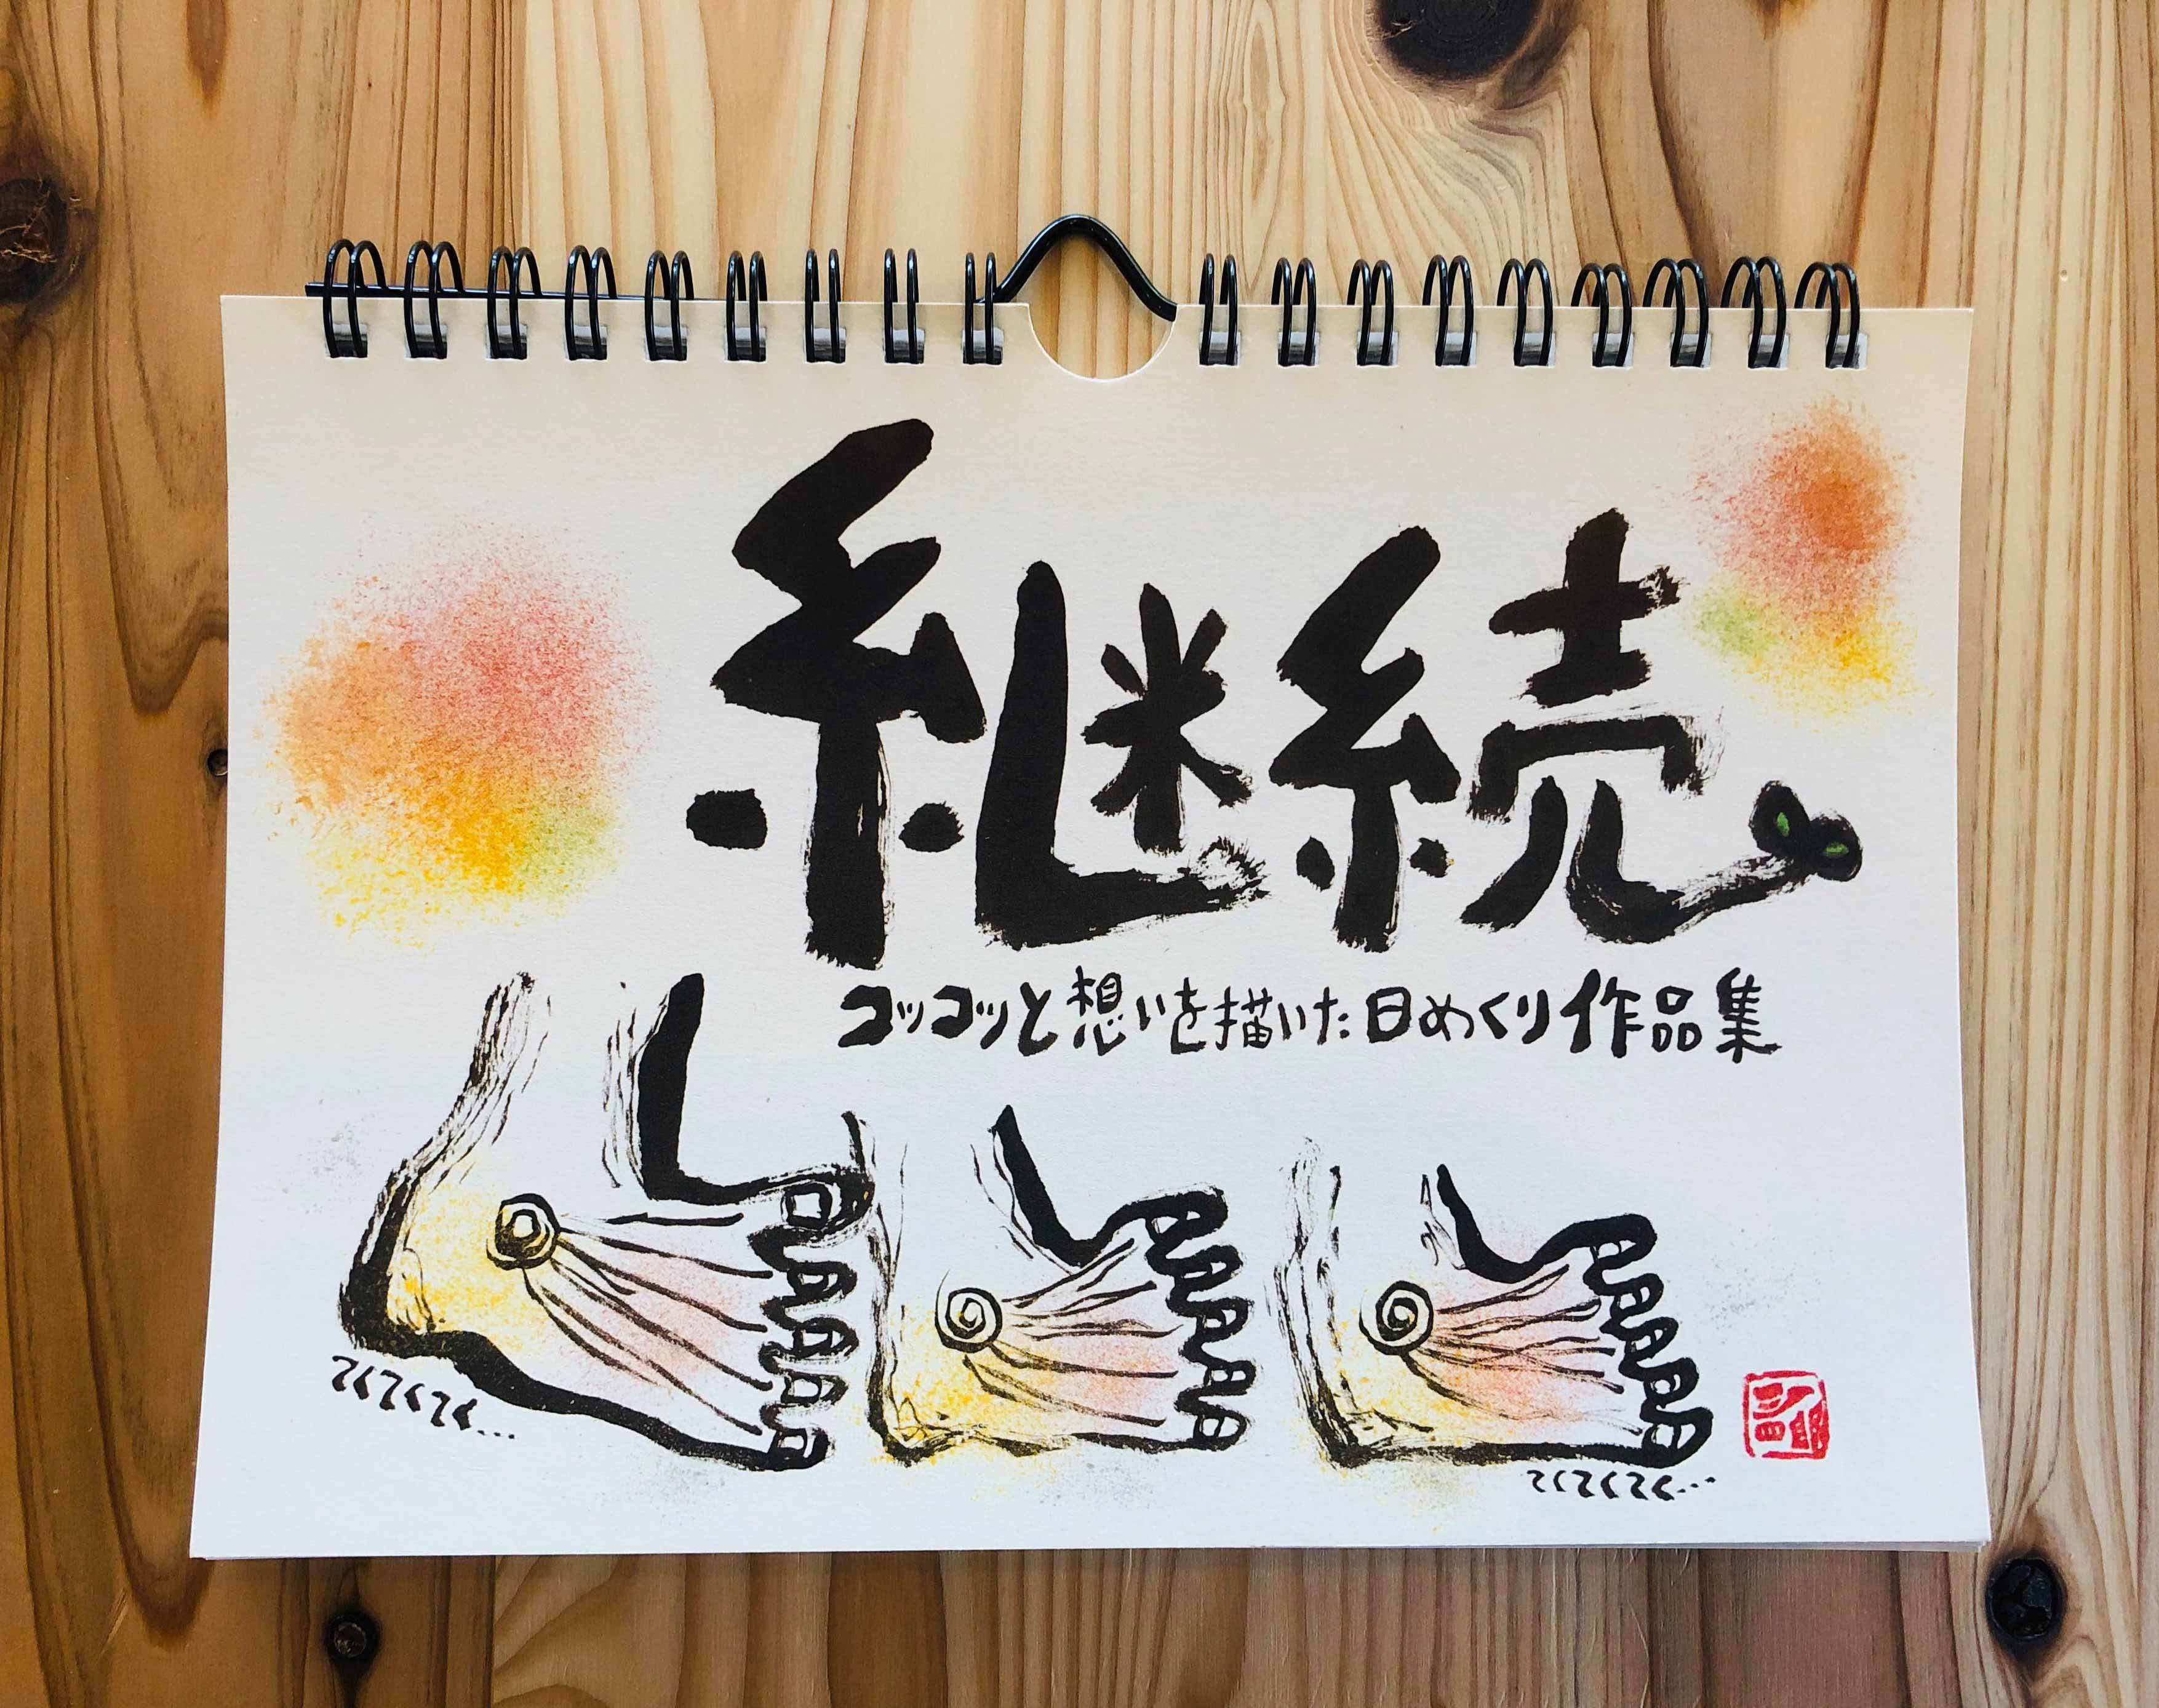 継続
コツコツと想いを描いた日めくり作品集
てくてくてく...
てくてくてく...